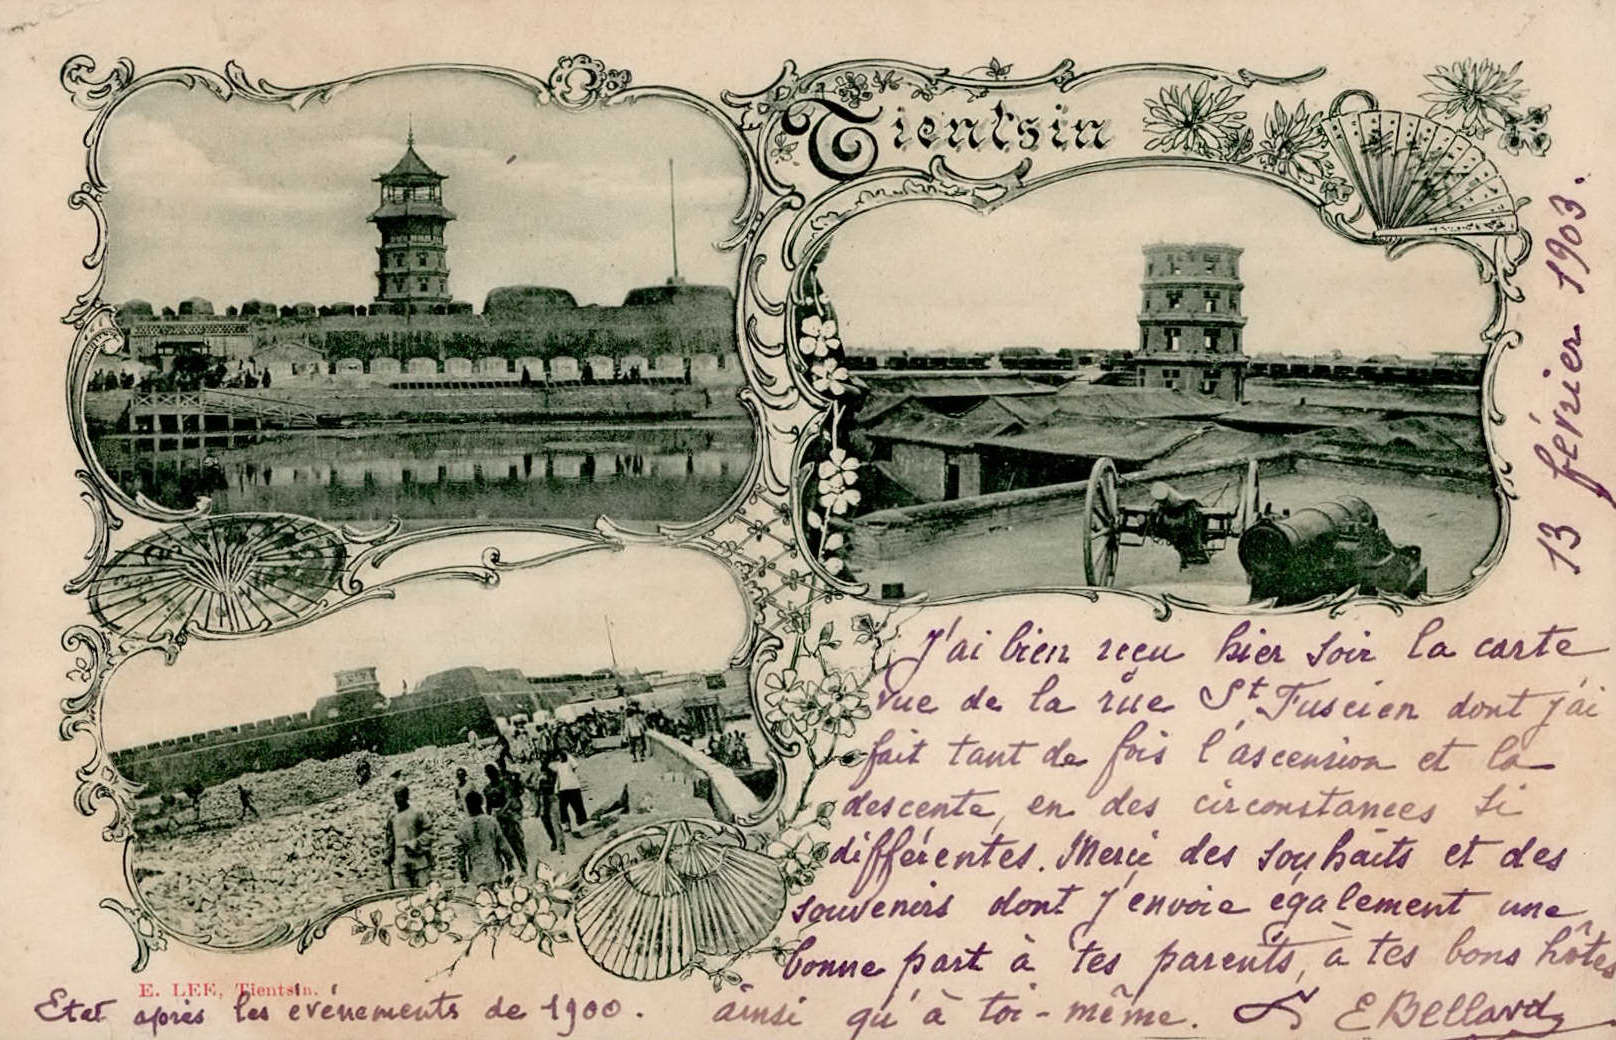 Tientsin
13 février 1903.
J'ai bien reçu hier soir la carte
vue de la rue St Fuscien dont j'ai
fait tant de fois l'ascension et la
descente, en des circonstances si
différentes. Merci des souhaits et des
souvenirs dont j'envoie également une
bonne part à tes parents, à tes bons hôtes
ainsi qu'à toi-même. E Bellard
E. LEE, Tientsin.
Etat après les événements de 1900.